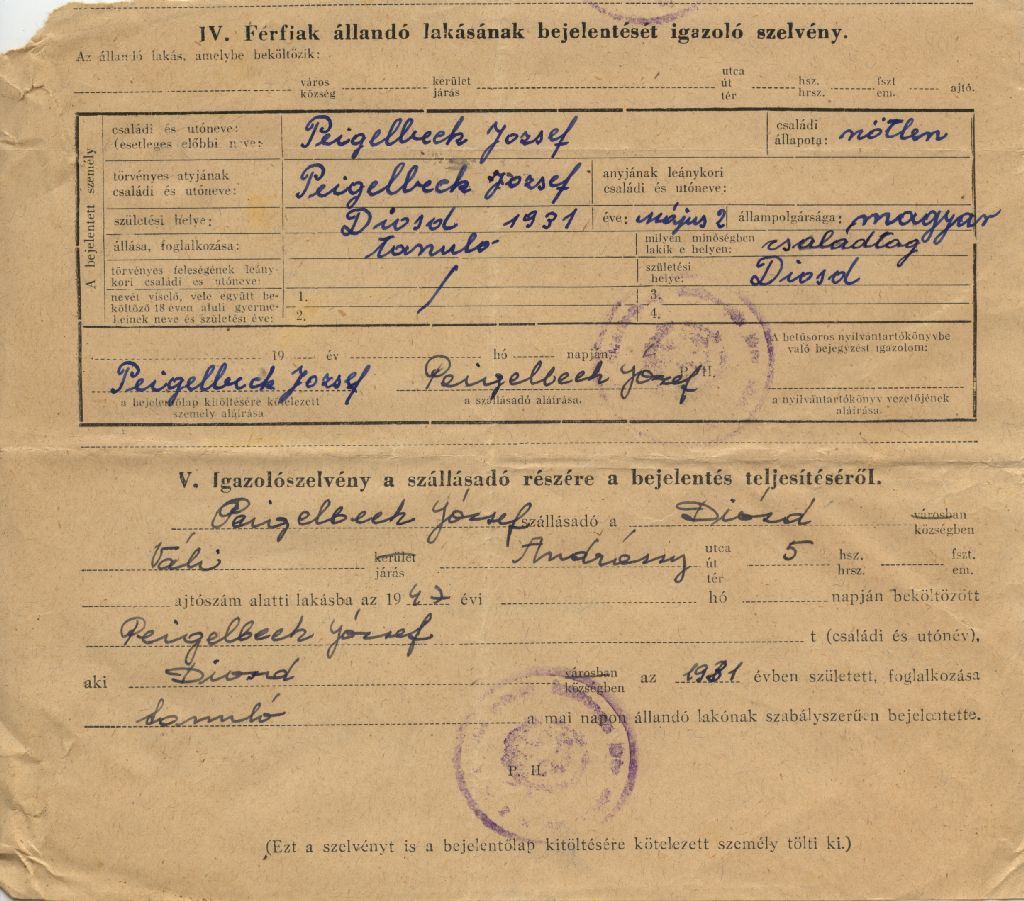 IV. Férfiak állandó lakásának bejelentését igazoló szelvény.
Az állandó lakás, amelybe beköltözik:
város község kerület járás utca út tér hsz. hrsz. fszt. em. ajtó.
A bejelentett személy
családi és utóneve: (esetleges előbbi neve: Peigelbeck Jozsef családi állapota: nőtlen
törvényes atyjának családi és utóneve: Peigelbeck Jozsef anyjának leánykori családi és utóneve:
születési helye: Diosd 1931 éve: május 2 állampolgársága: magyar
állása, foglalkozása: tanuló milyen minőségben lakik e helyen: családtag
törvényes feleségének leánykori családi és utóneve: / születési helye: Diosd
nevét viselő, vele együtt beköltöző 18 éven aluli gyermekeinek neve és születési éve: 1. 3.
2. 4.
19 év hó napján
A betűsoros nyilvántartókönyvbe való bejegyzést igazolom:
P. H.
Peigelbeck Jozsef Peigelbech József
a bejelentőlap kitöltésére kötelezett személy aláírása a szállásadó aláírása. a nyilvántartókönyv vezetőjének aláírása.
V. Igazolószelvény a szállásadó részére a bejelentés teljesítéséről.
Peigelbech József szállásadó a Diósd városban községben
Váli kerület járás Andrássy utca út tér 5 hsz. hrsz. fszt. em.
ajtószám alatti lakásba az 1947 évi hó napján beköltözött
Peigelbech József t (családi és utónév),
aki Diosd városban községben az 1931 évben született, foglalkozása
tanuló a mai napon állandó lakónak szabályszerűen bejelentette.
P. H.
(Ezt a szelvényt is a bejelentőlap kitöltésére kötelezett személy tölti ki.)